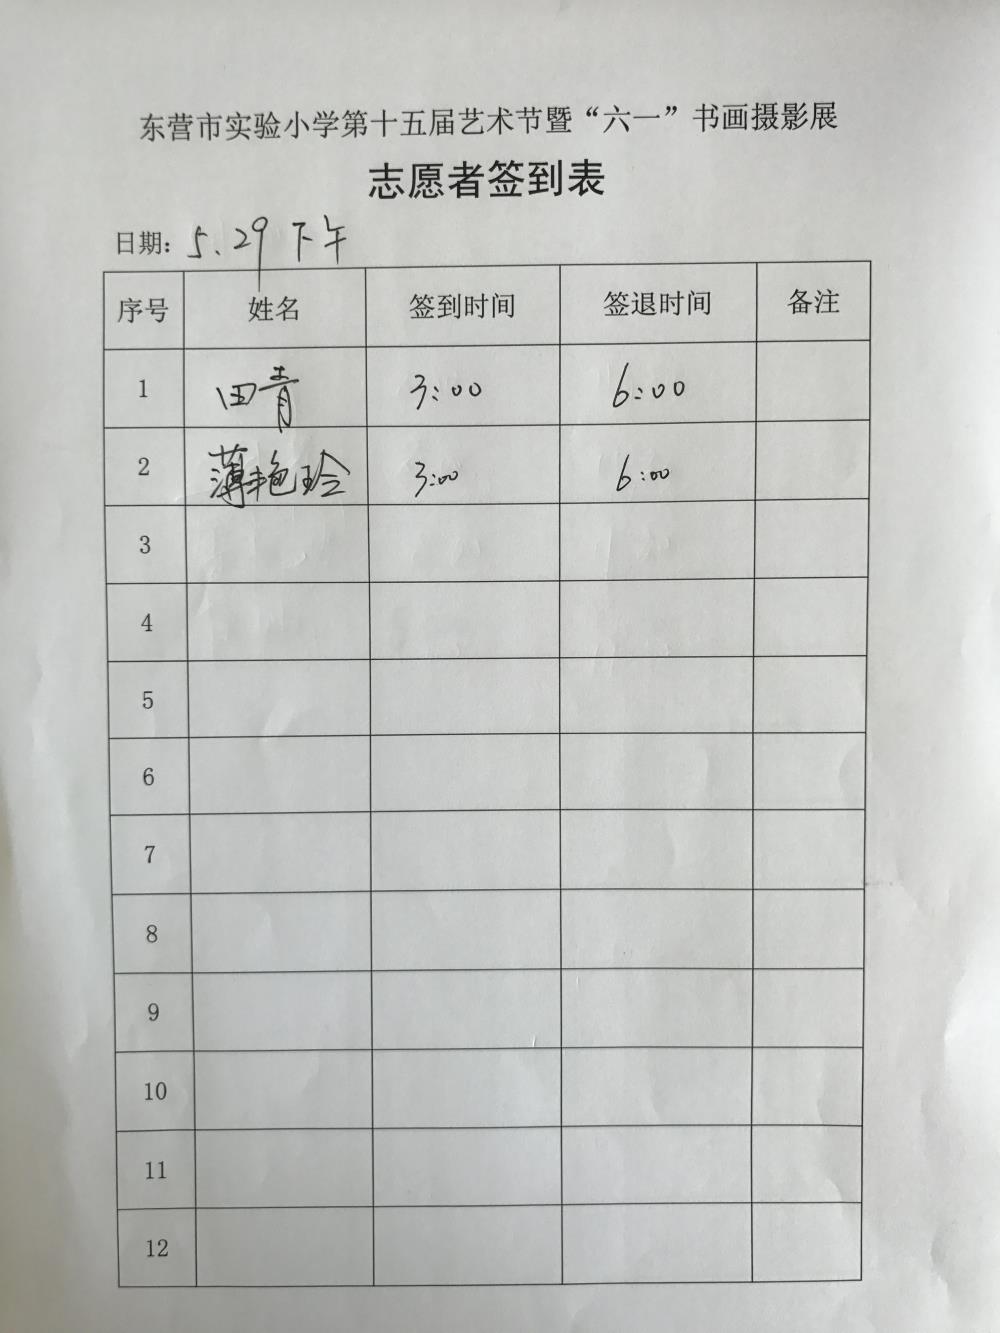 东营市实验小学第十五届艺术节暨“六一”书画摄影展
志愿者签到表
日期: 5.29 下午
序号 姓名 签到时间 签退时间 备注
1 田青 3:00 6:00
2 薄艳玲 3:00 6:00
3
4
5
6
7
8
9
10
11
12